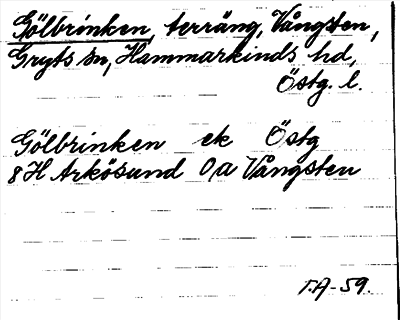 Gölbrinken, terräng, Vångsten,
Gryts sn, Hammarkinds hd,
Östg. l.
Gölbrinken ek Östg
8H Arkösund 0a Vångsten
T.A-59.